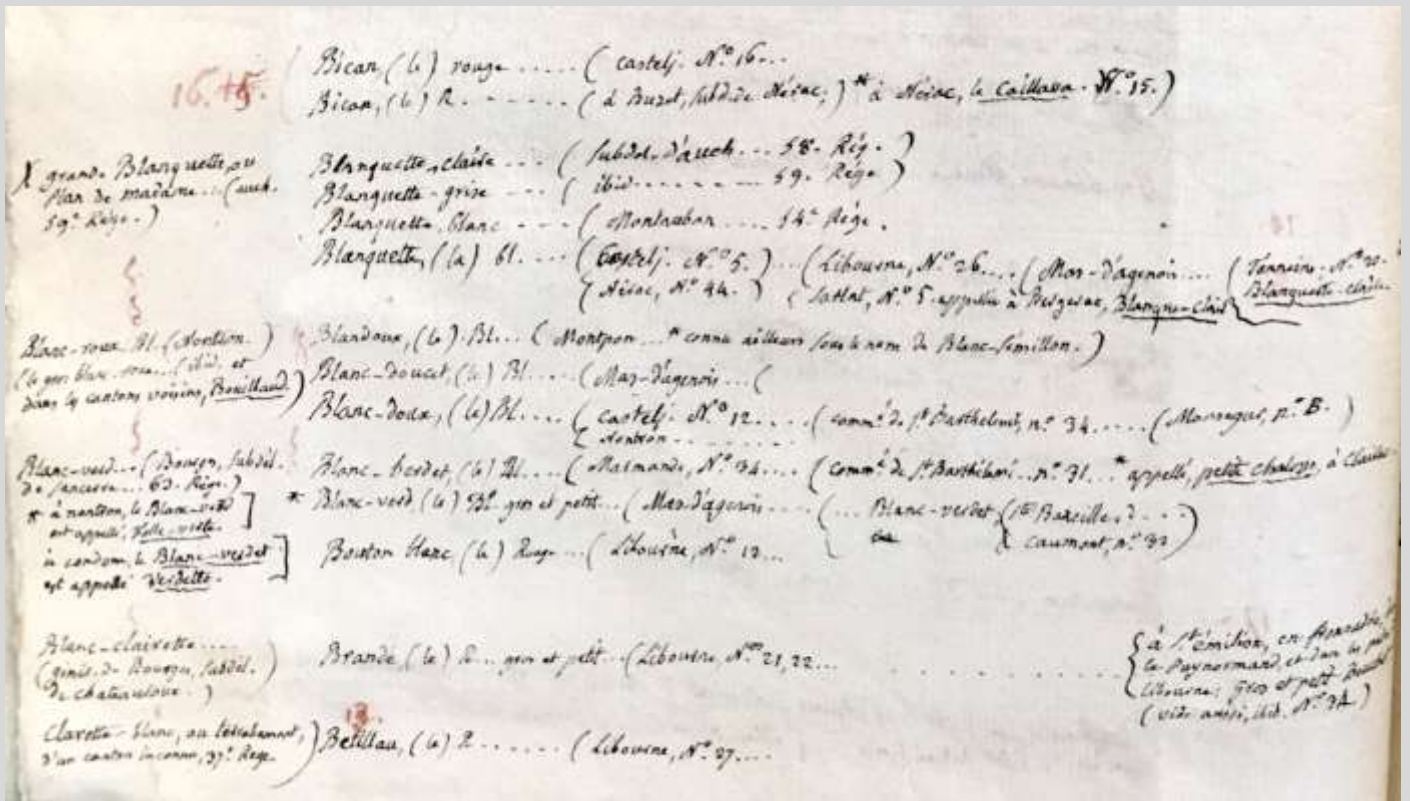 16. 15.
Bican (le) rouge ..... ( Castelj. N.º 16...
Bican, (le) R. ...... ( à Buzet, subd. de Nérac, ) * à Nérac, le Caillava. N.º 15. )
X grande Blanquette, ou
Plan de madame ... ( auch.
59.e Rége. )
Blanquette, claire .... ( subdel. d'auch ... 58. Rég. )
Blanquette-grise .... ( ibid ........ 59. Rége )
Blanquette, blanc .... ( Montauban .... 54.e Rége.
Blanquette, (la) bl. .... ( Castelj. N.º 5. ) ... ( Libourne, N.º 26 .... ( Mas-d'agenois .... ( Tonneins. N.º 20.
( Nérac, N.º 44. ) ( N.º 5. appellée à Bergerac, Blanque-claire Blanquette-claire
Blanc-roux Bl. ( Nontron. )
( le gros blanc-roux ... ( ibid. et
dans les cantons voisins, Bouillaud. )
Blandoux, (le) Bl... ( Montpon ... * connu ailleurs sous le nom de Blanc-semillon. )
Blanc-doucet, (le) Bl..... ( Mas-d'agenois ... (
Blanc-doux, (le) Bl.... ( Castelj. N.º 12 ..... ( comm.té de St. Barthelemi, n.º 34 ..... ( n.º B. )
( Nontron ........
Blanc-verd ... ( subdél.
de Sancerre ... 63. Rége. )
* à nontron, le Blanc-verd
est appellé,
à condom, le Blanc-verdet
est appellé Verdette.
Blanc-berdet, (le) Bl.... ( Marmande, N.º 34 .... ( comm.té de St. Barthélemi .. n.º 31... * appellé, petit à
* Blanc-verd (le) Bl. gros et petit ... ( Mas-d'agenois ..... ( ... Blanc-verdet ( Ste Bazeille, 2 ....
caumont, n.º 32 )
Bouton blanc, (le) Rouge ... ( Libourne, N.º 13 ...
Blanc-clairette .....
( génér. de Bourges, subdél.
de chateauroux. )
Brande, (le) R... gros et petit ... ( Libourne, N.os 21, 22 ...
à St. émilion, en
le Puynormand, et dans le
Libourne; Gros et petit
( vide ibid. N.º 34 )
Clarette-blanc,
d'un canton inconnu, 37.e Rége.
13.
Betillau, (le) R ....... ( Libourne, N.º 27....